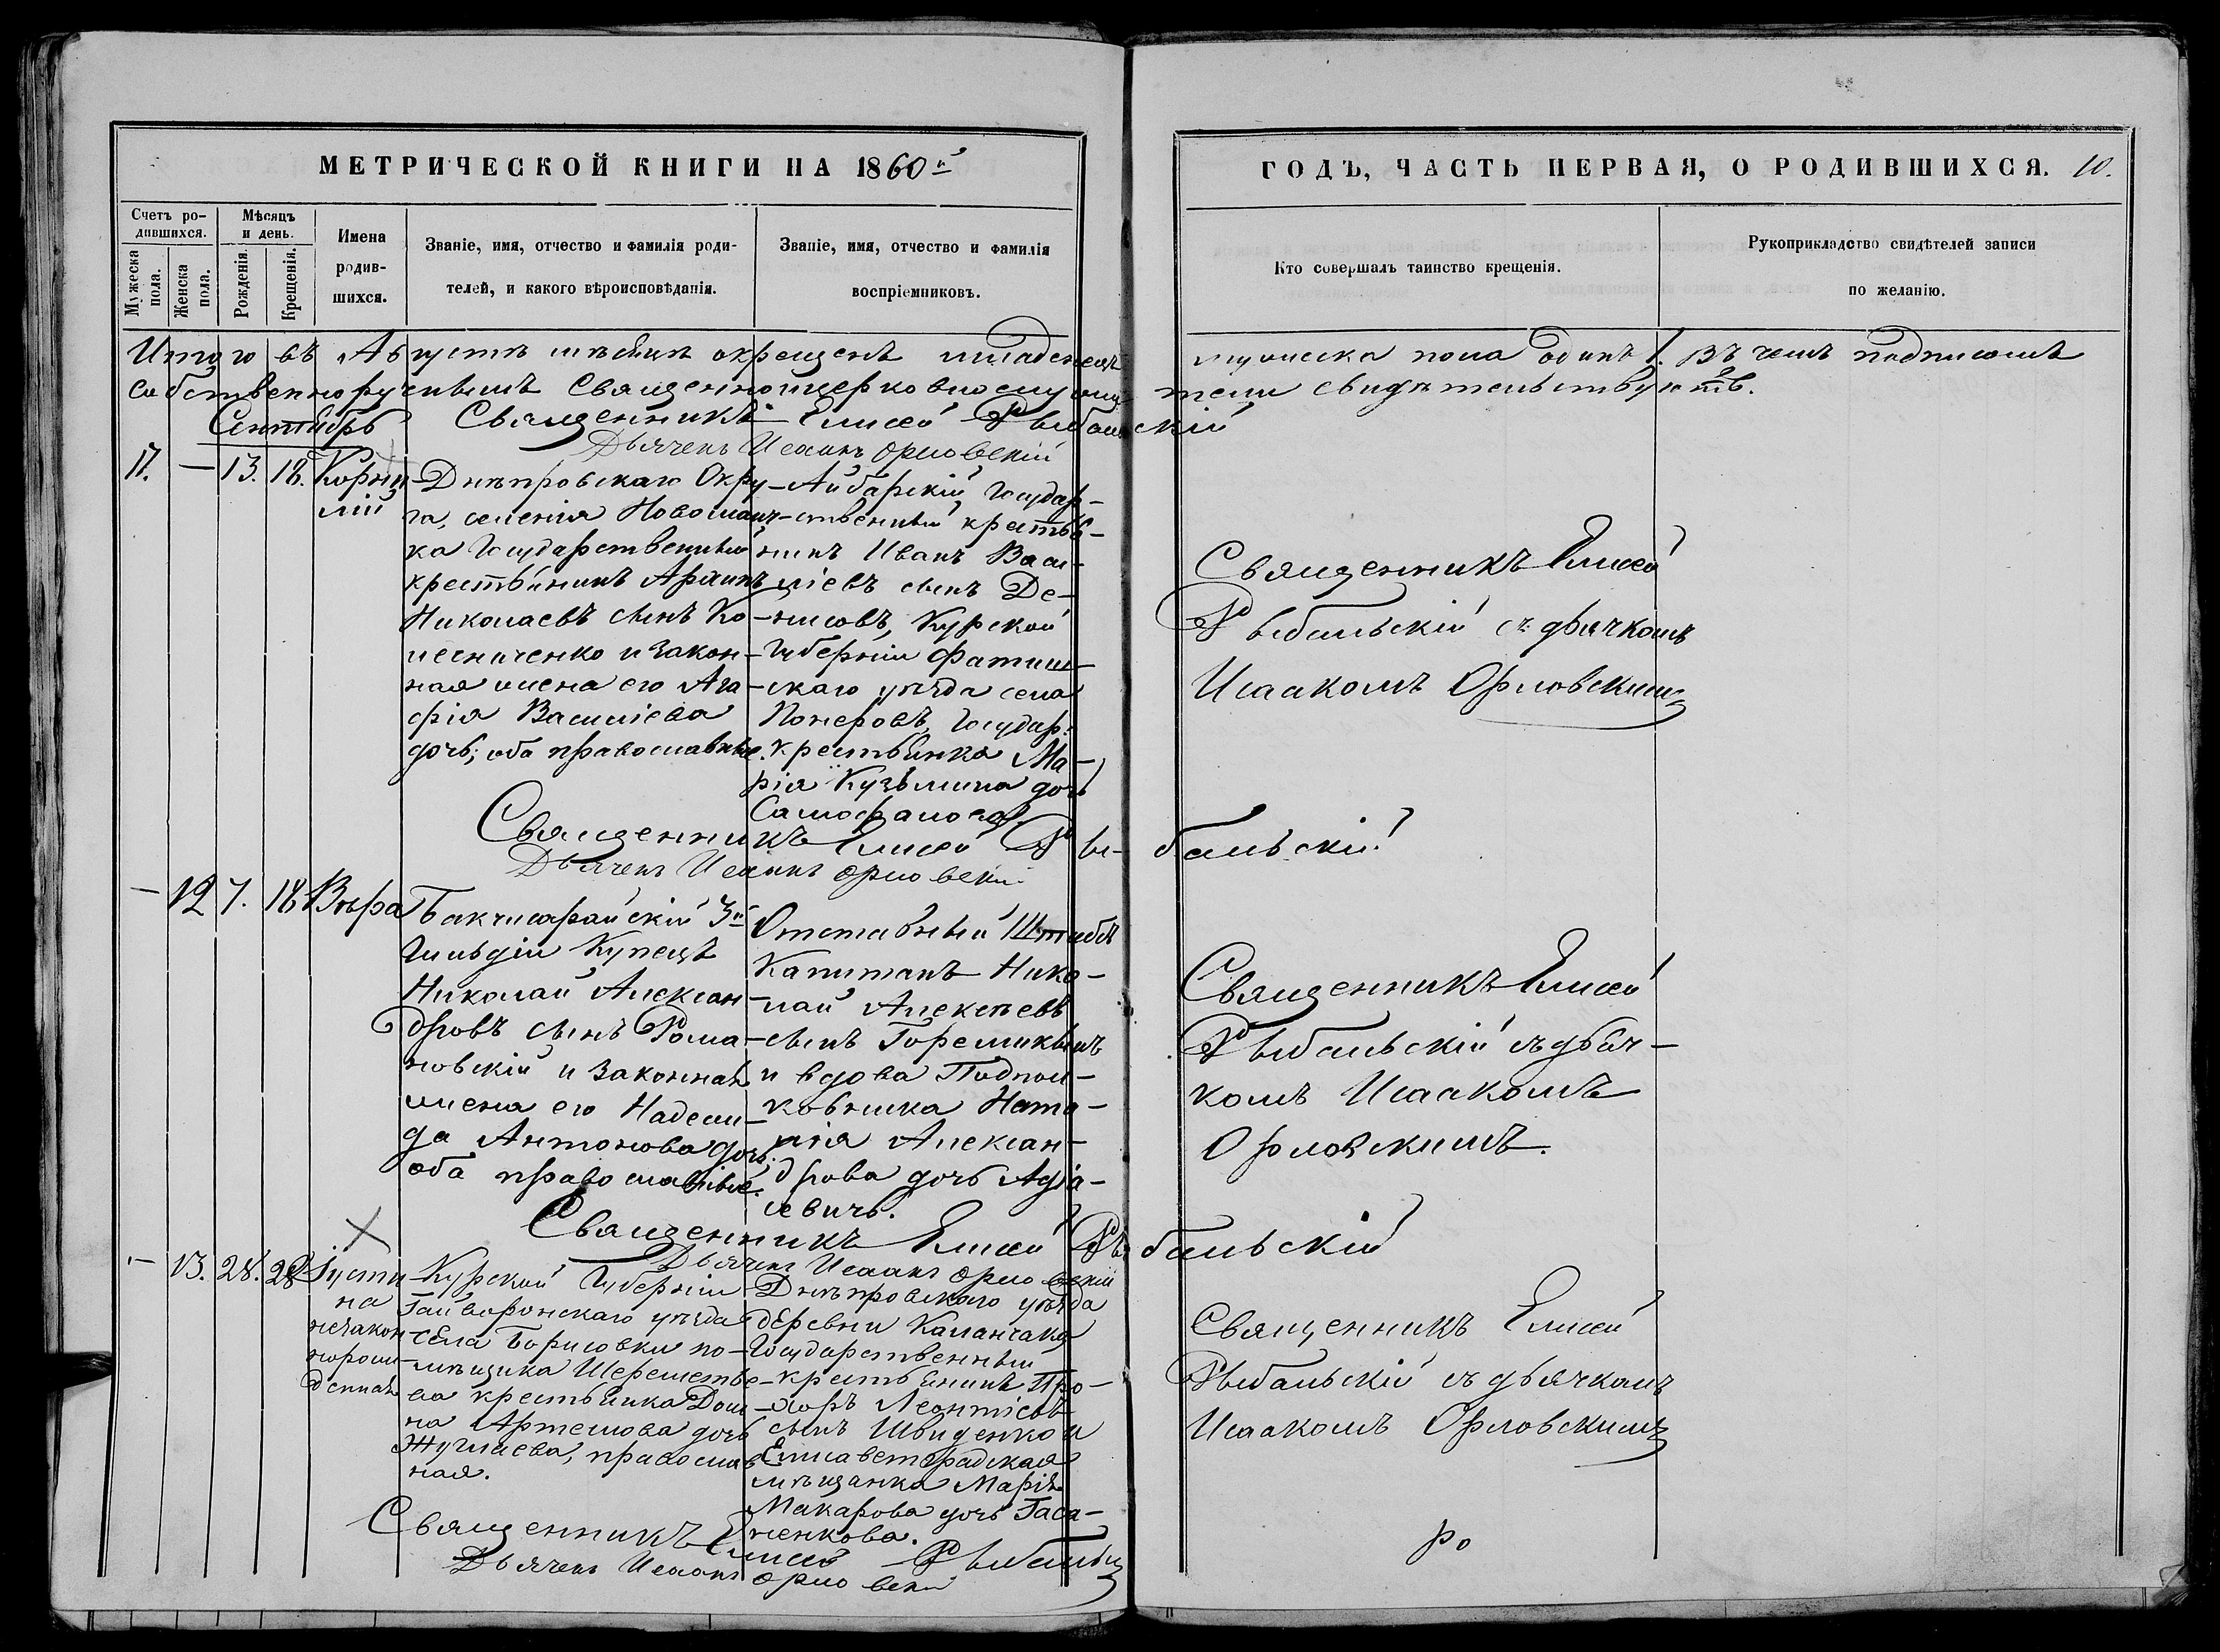 МЕТРИЧЕСКОЙ КНИГИ НА 1860й
ГОДЪ, ЧАСТЬ ПЕРВАЯ, О РОДИВШИХСЯ. 10.
Счетъ ро-
дившихся.
Мужеска пола.
Женска пола.
Мѣсяцъ
и день.
Рожденія.
Крещенія.
Имена
родив-
шихся.
Званіе, имя, отчество и фамилія роди-
телей, и какого вѣроисповѣданія.
Званіе, имя, отчество и фамилія
воспріемниковъ.
Кто совершалъ таинство крещенія.
Рукоприкладство свидѣтелей записи
по желанію.
Итого въ Августѣ мѣсяцѣ окрещенъ младенецъ мужеска пола одинъ 1. Въ чемъ подписомъ
собственноручнымъ Священноцерковнослужители свидѣтельствуютъ.
Священникъ Елисей Рыбальскій
Дьячекъ Исаакъ Орловскій
Сентябрь
17. — 13. 18. Корни-
лій
Днѣпровскаго Окру-
га, селенія Новомаяч-
ка Государственный
крестьянинъ
Николаевъ сынъ Ко-
лесниченко и закон-
ная жена его Ага-
фія Василіева
дочь; оба православные.
Айбарскій Государ-
ственный крестья-
нинъ Иванъ Васи-
ліевъ сынъ Де-
нисовъ, Курской
Губерніи Фатиж-
скаго уѣзда села
Государ:
крестьянка Ма-
рія Кузьмина дочь
Священникъ Елисей
Рыбальскій съ дьячкомъ
Исаакомъ Орловскимъ
Священникъ Елисей Рыбальскій
Дьячекъ Исаакъ Орловскій
— 12 7. 18 Вѣра
Бакчисарайскій 3й
Гильдіи Купецъ
Николай Алексан-
дровъ сынъ Рома-
новскій и законная
жена его Надеж-
да Антонова дочь;
оба православные.
Отставный Штабсъ
Капитанъ Нико-
лай Алексѣевъ
сынъ Горемыкинъ
и вдова Подпол-
ковника Ната-
лія Алексан-
дрова дочь Адіа-
севичь.
Священникъ Елисей
Рыбальскій съ дьяч-
комъ Исаакомъ
Орловскимъ.
Священникъ Елисей Рыбальскій
Дьячекъ Исаакъ Орловскій
— 13. 28. 28 Іусти-
на
незакон-
норож-
денная
Курской Губерніи
Гайворонскаго уѣзда
села Борисовки по-
мѣщика Шереметье-
ва крестьянка Дом-
на Артемова дочь
православ-
ная.
Днѣпровскаго уѣзда
деревни Каланчака
Государственный
крестьянинъ Про-
хоръ Леонтіевъ
сынъ Швиденко и
Елисаветградская
мѣщанка Марія
Макарова дочь Гаса-
ненкова.
Священникъ Елисей
Рыбальскій съ дьячкомъ
Исаакомъ Орловскимъ
Священникъ Елисей Рыбальскій
Дьячекъ Исаакъ Орловскій
ро